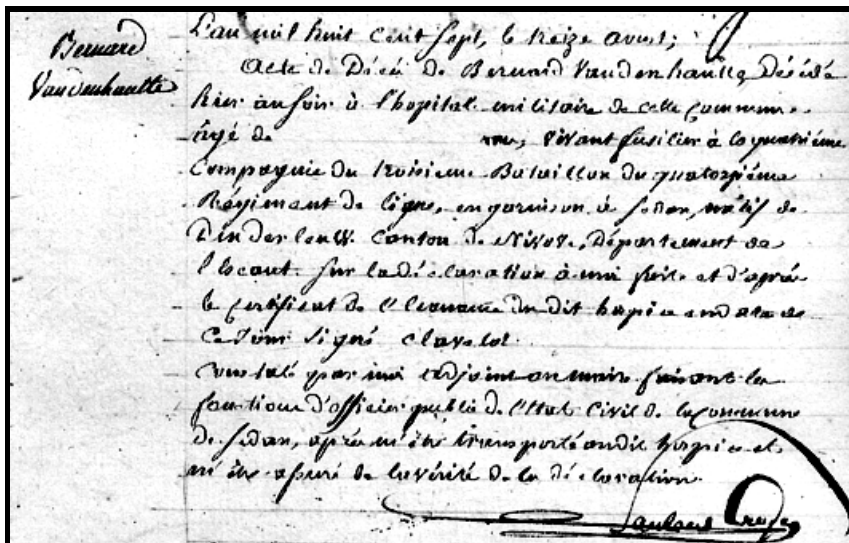 Bernard
Vandenhautte
L'an mil huit cent sept, le treize avust;
Acte de Décès de Bernard Vandenhautte, Décédé
hier au soir à l'hopital militaire de cette Commune
agé de ans, vivant fusilier à la quatrième
Compagnie du troisieme Bataillon du quatorzième
Régiment de ligne, en garnison à Sedan, natif de
Denderleuw. Canton de Ninove, Département de
l'Escaut. Sur la déclaration à moi faite et d'après
le certificat de l'Econome du dit hospice en date de
ce Jour signé Clavelot.
Constaté par moi adjoint au maire faisant les
fonctions d'officier public de l'Etat Civil de la Commune
de Sedan, après m'être transporté audit hospice et
m'être assuré de la vérité de la déclaration.